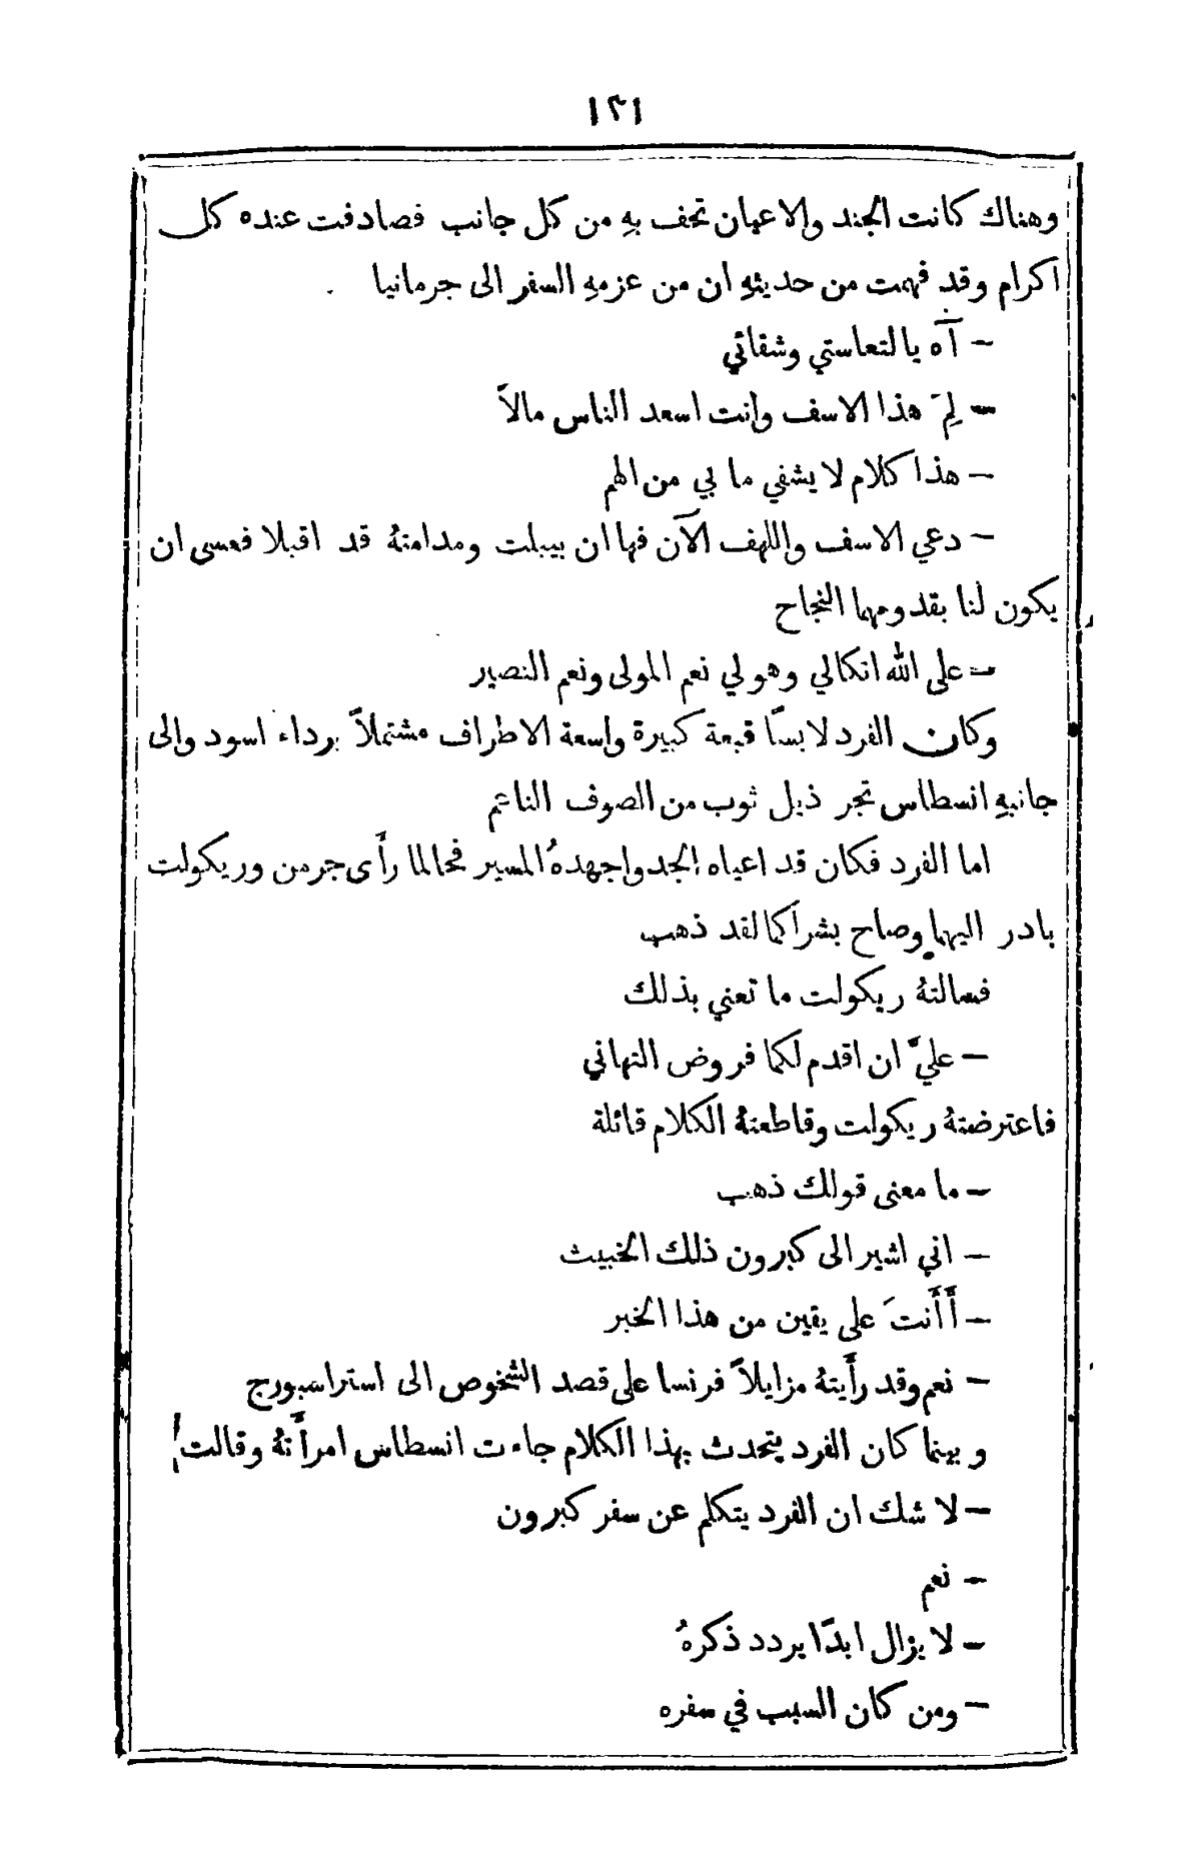 ١٢١
وهناك كانت الجند والاعيان تحف بهِ من كل جانب فصادفت عنده كل
اكرام وقد فهمت من حديثهِ ان من عزمهِ السفر الى جرمانيا
– آه يا لتعاستي وشقائي
– لِمَ هذا الاسف وانت اسعد الناس مالاً
– هذا كلام لا يشفي ما بي من الهم
– دعي الاسف واللهف الآن فها ان بيبلت ومدامتهُ قد اقبلا فعسى ان
يكون لنا بقدومهما النجاح
– على الله اتكالي وهو لي نعم المولى ونعم النصير
وكان الفرد لابسًا قبعة كبيرة واسعة الاطراف مشتملاً برداء اسود والى
جانبهِ انسطاس تجر ذيل ثوب من الصوف الناعم
اما الفرد فكان قد اعياه الجد واجهدهُ المسير فحالما رأَى جرمن وريكولت
بادر اليهما وصاح بشراكما لقد ذهب
فسالتهُ ريكولت ما تعني بذلك
– عليَّ ان اقدم لكما فروض التهاني
فاعترضتهُ ريكولت وقاطعتهُ الكلام قائلة
– ما معنى قولك ذهب
– اني اشير الى كبرون ذلك الخبيث
– أَأَنتَ على يقين من هذا الخبر
– نعم وقد رأَيتهُ مزايلاً فرنسا على قصد الشخوص الى استراسبورج
وبينما كان الفرد يتحدث بهذا الكلام جاءت انسطاس امرأَتهُ وقالت
– لا شك ان الفرد يتكلم عن سفر كبرون
– نعم
– لا يزال ابدًا يردد ذكرهُ
– ومن كان السبب في سفره